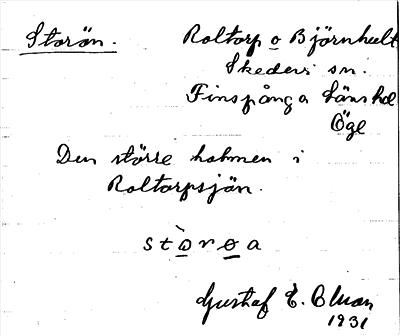 Storön. Roltorp o Björnhult
Skedevi sn.
Finspånga läns hd
Ögl
Den större holmen i
Roltorpsjön.
störөa
Gustaf E.
1931